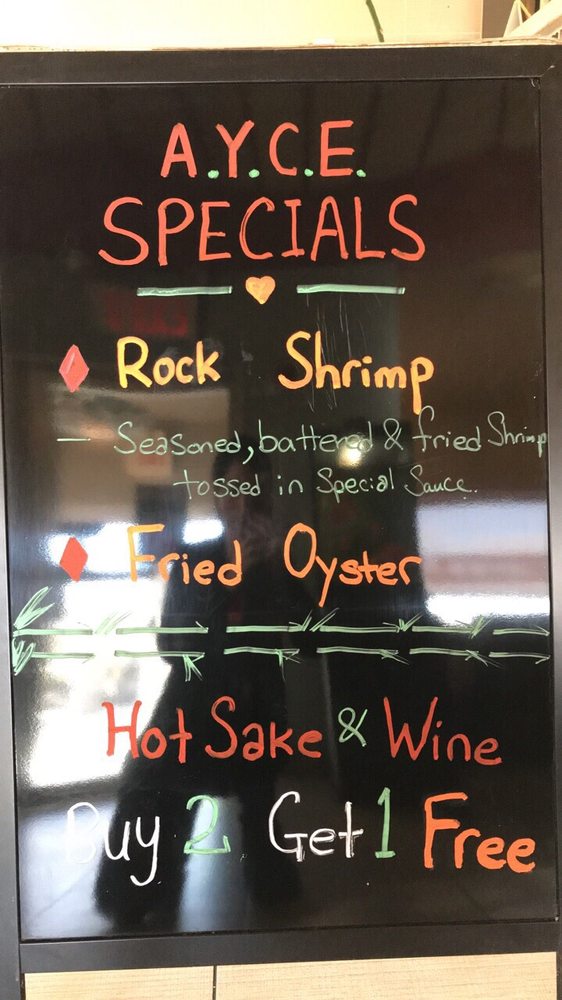 A.Y.C.E.
SPECIALS
Rock Shrimp
— Seasoned, battered & fried Shrimp
tossed in Special Sauce.
Fried Oyster
Hot Sake & Wine
Buy 2 Get 1 Free